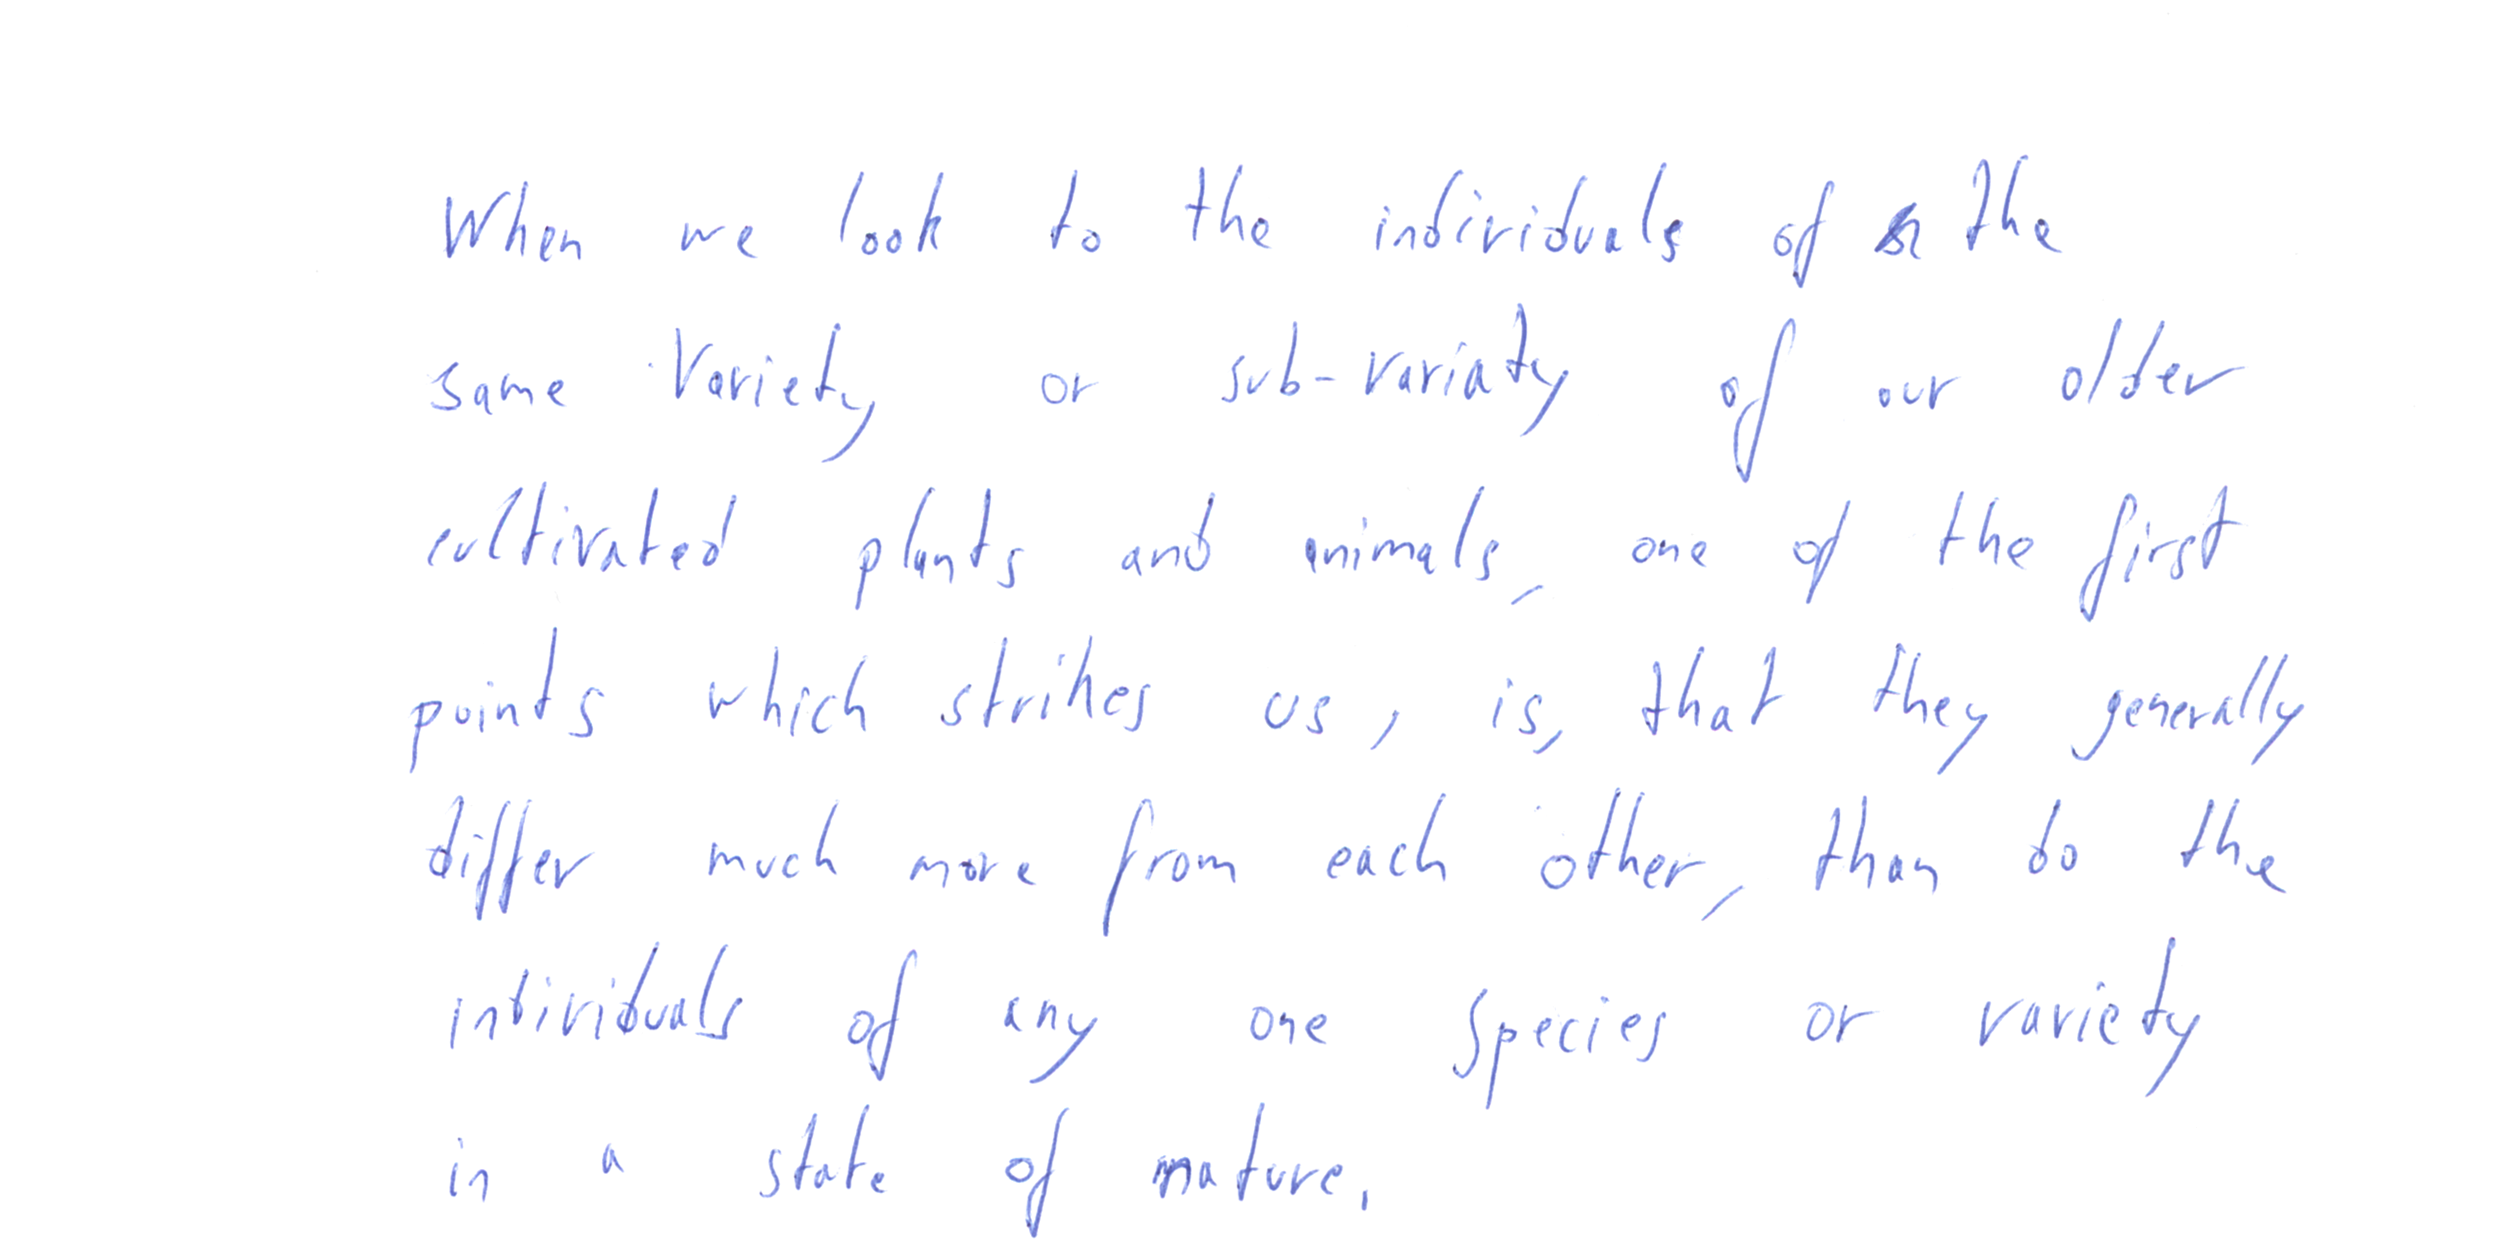 When we look to the individuals of the
same Variety or sub-variaty of our older
cultivated plants and animals, one of the first
points which strikes us, is, that they generally
differ much more from each other, than do the
individuals of any one species or variety
in a state of nature.